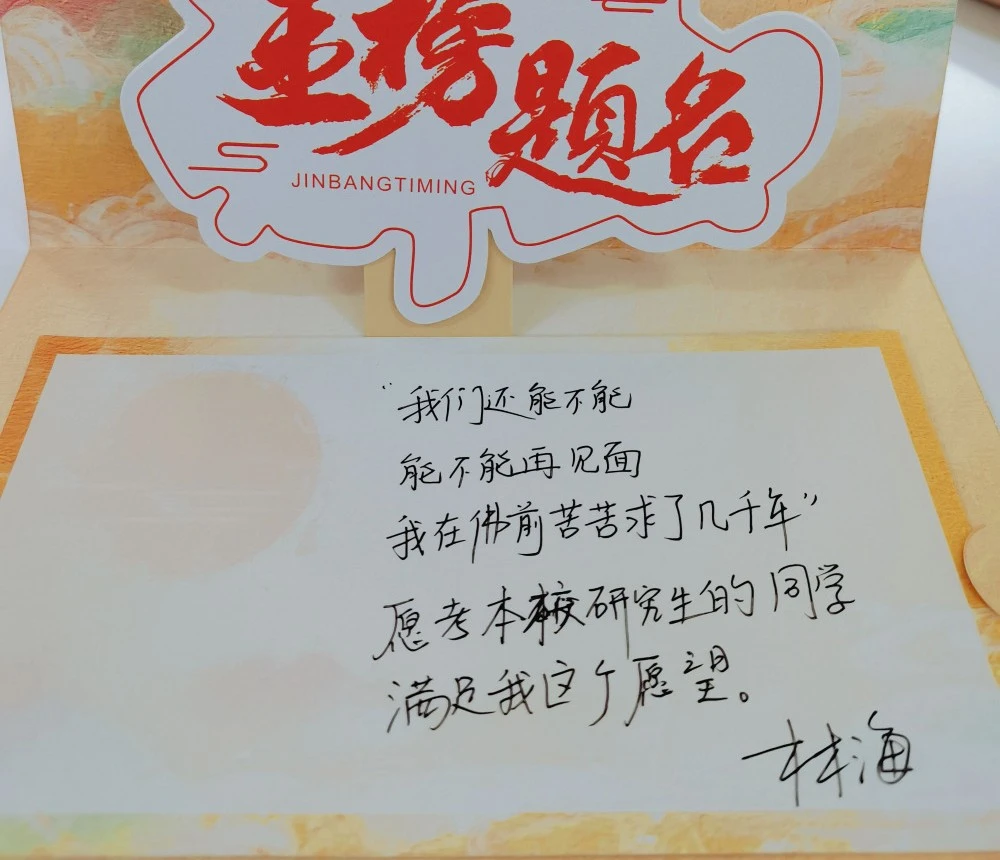 金榜题名
JINBANGTIMING
“我们还能不能
能不能再见面
我在佛前苦苦求了几千年”
愿考本校研究生的同学
满足我这个愿望。
林海